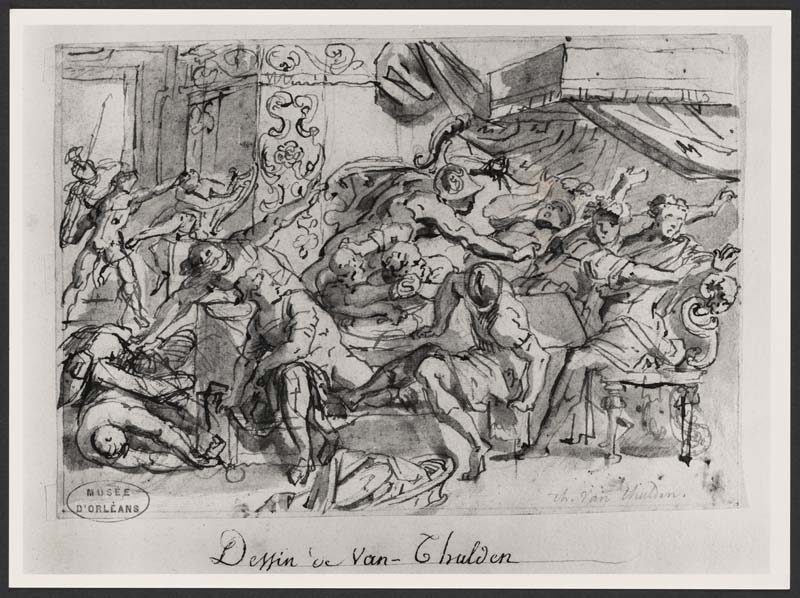 MUSÉE
D'ORLÉANS
th. van thulden.
Dessin de Van-Thulden